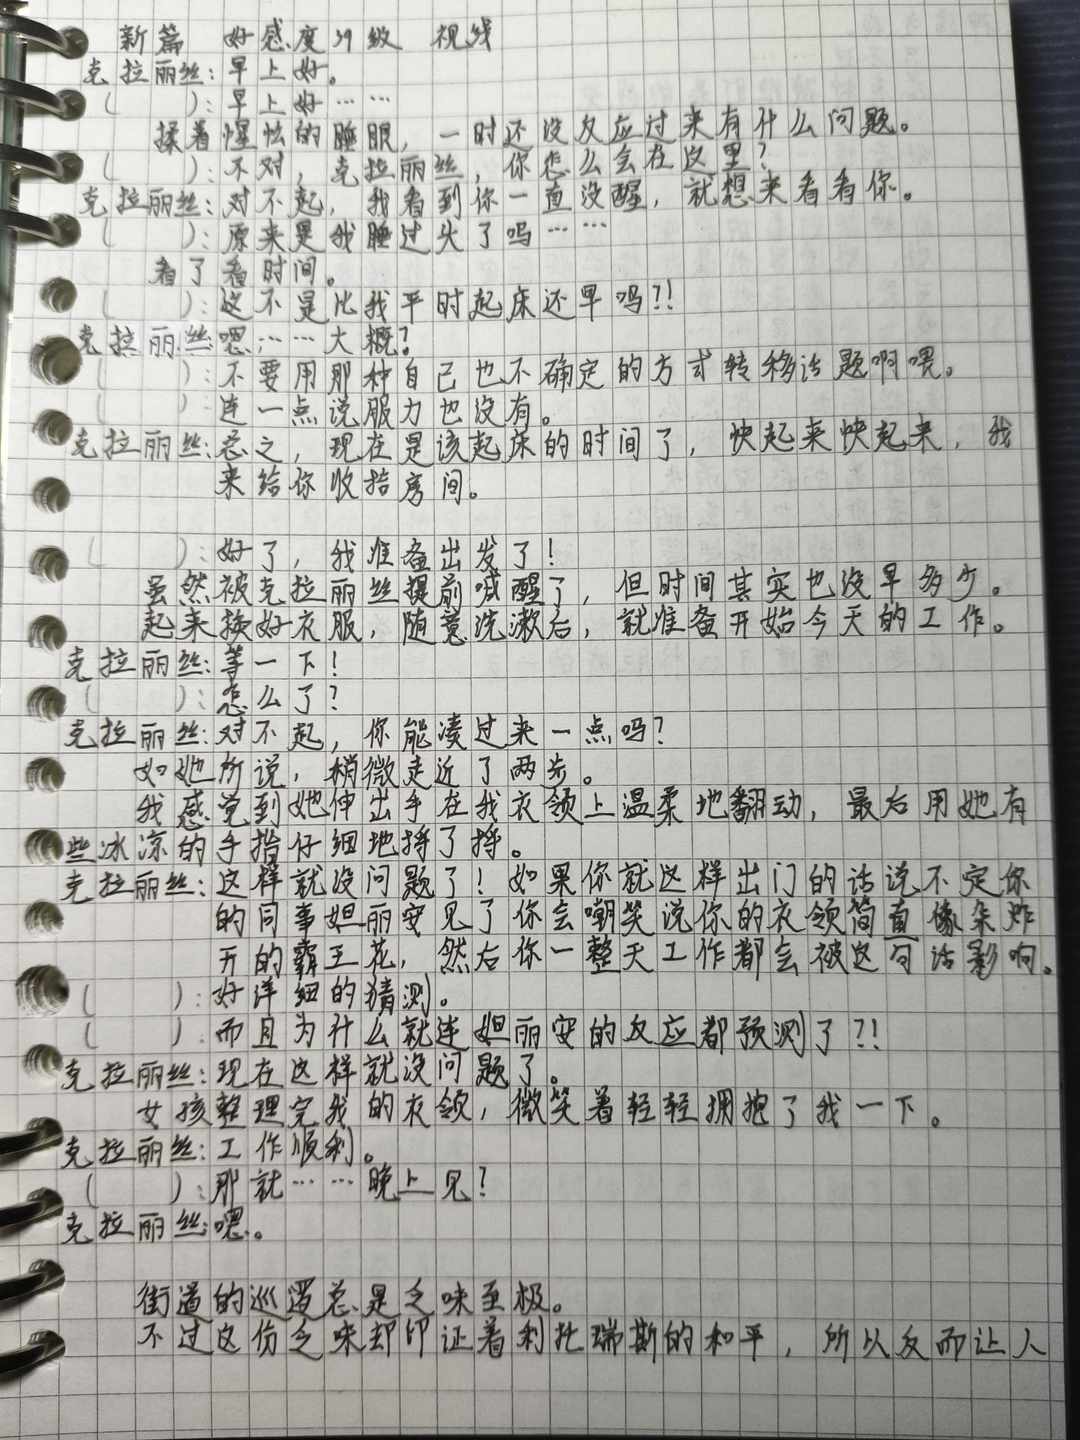 新篇 好感度39级 视线
克拉丽丝:早上好。
( ):早上好……
揉着惺忪的睡眼,一时还没反应过来有什么问题。
( ):不对,克拉丽丝,你怎么会在这里?
克拉丽丝:对不起,我看到你一直没醒,就想来看看你。
( ):原来是我睡过头了吗……
看了看时间。
( ):这不是比我平时起床还早吗?!
克拉丽丝:嗯……大概?
( ):不要用那种自己也不确定的方式转移话题啊喂。
( ):连一点说服力也没有。
克拉丽丝:总之,现在是该起床的时间了,快起来快起来,我
来给你收拾房间。
( ):好了,我准备出发了!
虽然被克拉丽丝提前喊醒了,但时间其实也没早多少。
起来换好衣服,随意洗漱后,就准备开始今天的工作。
克拉丽丝:等一下!
( ):怎么了?
克拉丽丝:对不起,你能凑过来一点吗?
如她所说,稍微走近了两步。
我感觉到她伸出手在我衣领上温柔地翻动,最后用她有
些冰凉的手指仔细地捋了捋。
克拉丽丝:这样就没问题了!如果你就这样出门的话说不定你
的同事妲丽安见了你会嘲笑说你的衣领简直像朵炸
开的霸王花,然后你一整天工作都会被这句话影响。
( ):好详细的猜测。
( ):而且为什么就连妲丽安的反应都预测了?!
克拉丽丝:现在这样就没问题了。
女孩整理完我的衣领,微笑着轻轻拥抱了我一下。
克拉丽丝:工作顺利。
( ):那就……晚上见?
克拉丽丝:嗯。
街道的巡逻总是乏味至极。
不过这份乏味却印证着利托瑞斯的和平,所以反而让人